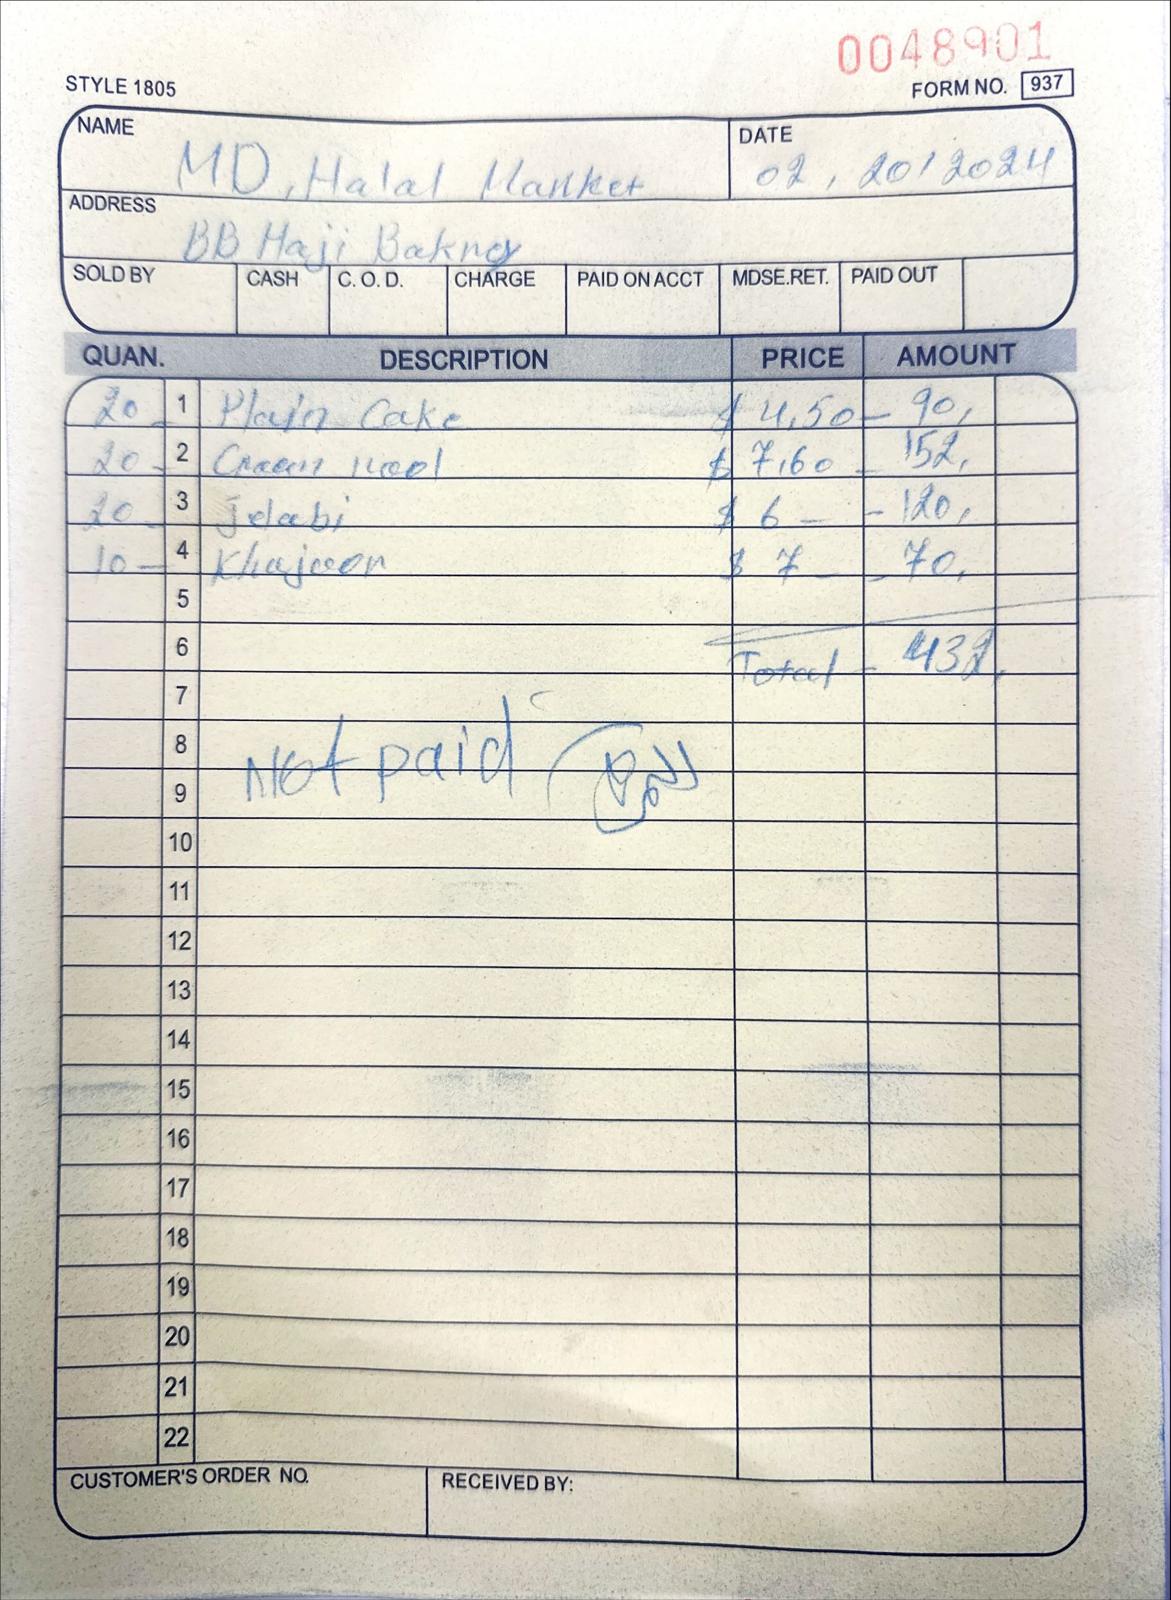 0048901
STYLE 1805 FORM NO. 937
NAME MD, Halal Market DATE 02, 20/2024
ADDRESS BB Haji Bakrey
SOLD BY CASH C. O. D. CHARGE PAID ON ACCT MDSE.RET. PAID OUT
QUAN. DESCRIPTION PRICE AMOUNT
20 - 1 Plain Cake $ 4,50 - 90,
20 - 2 Cream $ 7,60 - 152,
20 - 3 Jelabi $ 6 - - 120,
10 - 4 Khajoor $ 7 - - 70,
5
6 Total - 432,
7
8 Not paid
9
10
11
12
13
14
15
16
17
18
19
20
21
22
CUSTOMER'S ORDER NO. RECEIVED BY: